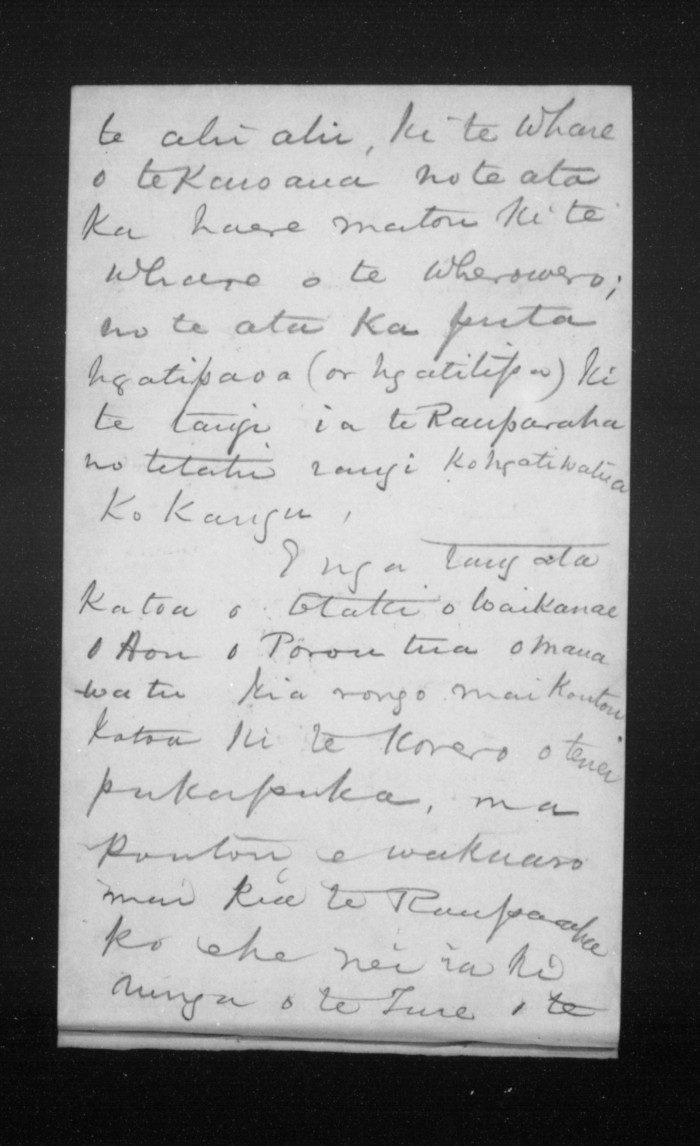 te ahi ahi, ki te Whare
o te Kawana no te ata
Ka haere matou ki te
Whare o te Wherowero;
no te ata Ka puta
ngatipaoa (or ngatitipa) ki
te tangi ia te Rauparaha
no tetahi rangi Ko ngatiwatua
Ko Kangu,
E nga tangata
Katoa o Otaki o Waikanae
o Hou o Porou tua o Mana
watu kia rongo mai Koutou
katoa ki te Korero o tenei
pukapuka, ma
Koutou e wakaaro
mai kia te Rauparaha
ko ehe nei ia ki
runga o te Ture o te